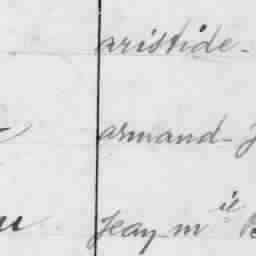 aristide-
armand-
Jean-m ie